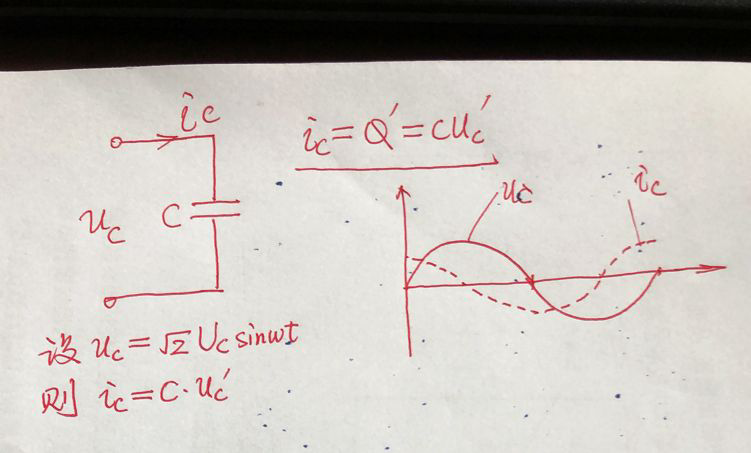 ic
ic=Q′=CUc′
uc
C
uc
ic
设 uc=√2 Uc sinωt
则 ic=C·uc′